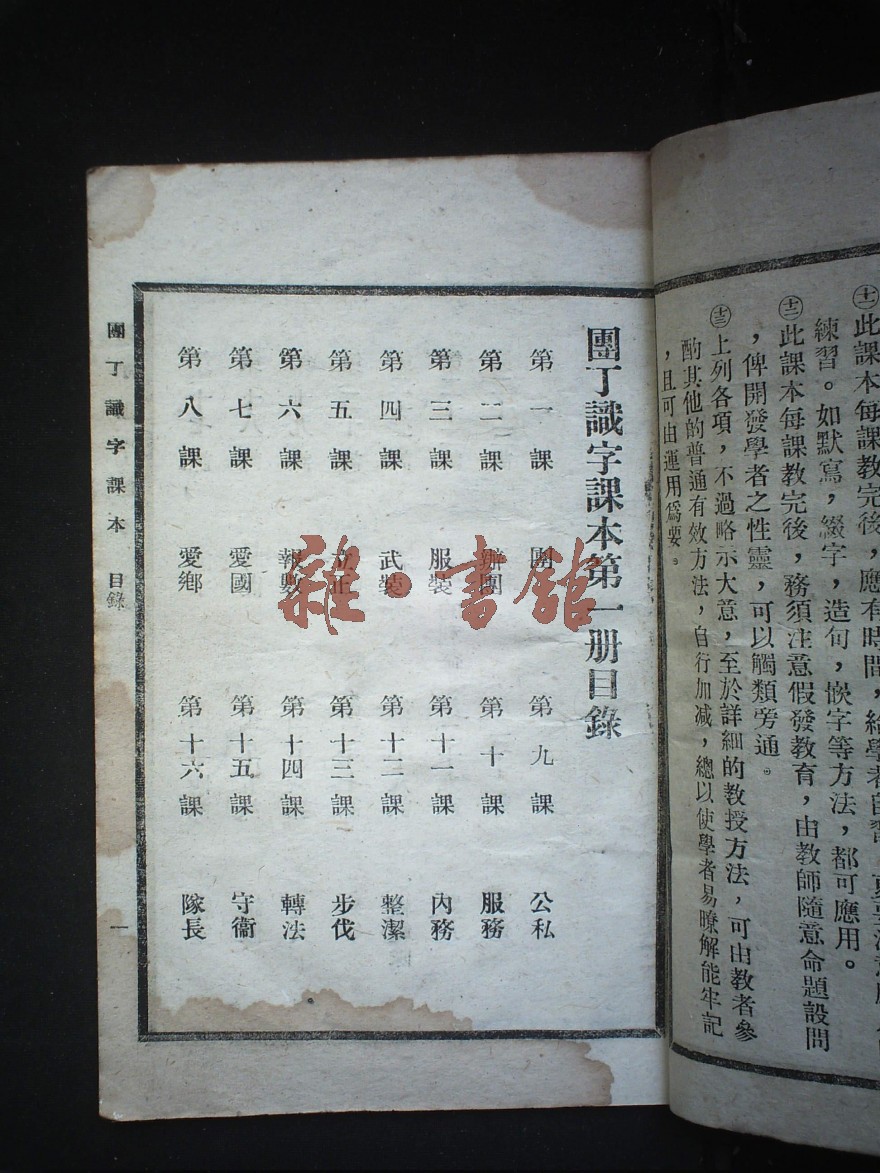 ㊉此課本每課教完後，應有時間，給學者自習，
練習。如默寫，綴字，造句，嵌字等方法，都可應用。
此課本每課教完後，務須注意假發教育，由教師隨意命題設問
，俾開發學者之性靈，可以觸類旁通。
上列各項，不過略示大意，至於詳細的教授方法，可由教者參
酌其他的普通有效方法，自行加減，總以使學者易瞭解能牢記
，且可由運用爲要。
團丁識字課本第一册目錄
第一課 團丁
第二課 辦團
第三課 服裝
第四課 武裝
第五課 立正
第六課 報數
第七課 愛國
第八課 愛鄉
第九課 公私
第十課 服務
第十一課 內務
第十二課 整潔
第十三課 步伐
第十四課 轉法
第十五課 守衞
第十六課 隊長
團丁識字課本 目錄
一
雜·書館